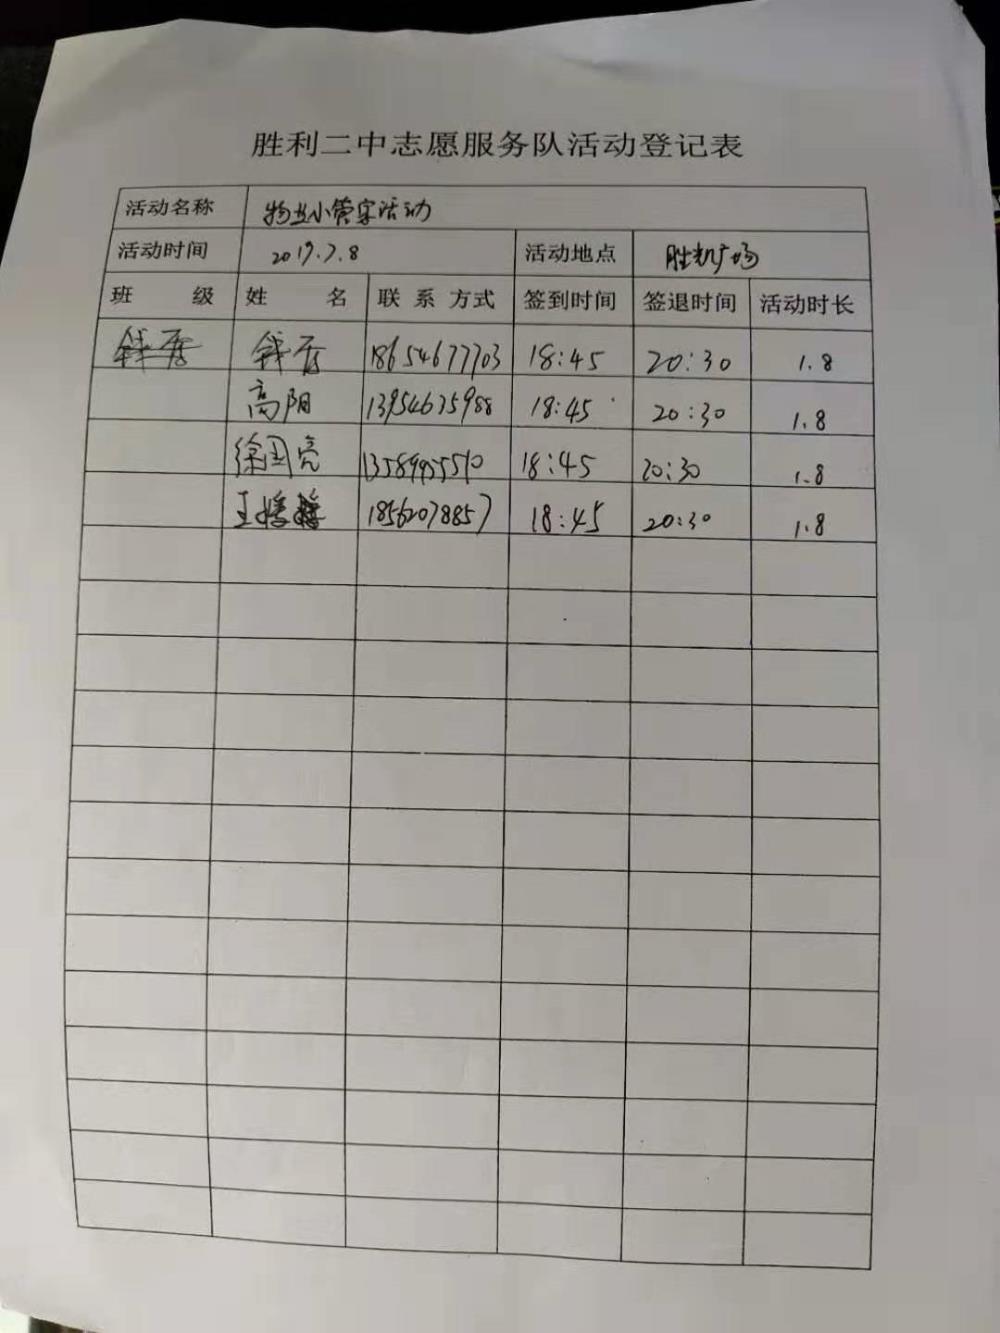 胜利二中志愿服务队活动登记表
活动名称 物业小管家活动
活动时间 2019.7.8 活动地点 胜机广场
班 级 姓 名 联 系 方式 签到时间 签退时间 活动时长
18654677703 18:45 20:30 1.8
高阳 13954675988 18:45 20:30 1.8
徐国亮 18:45 20:30 1.8
王 18562078857 18:45 20:30 1.8